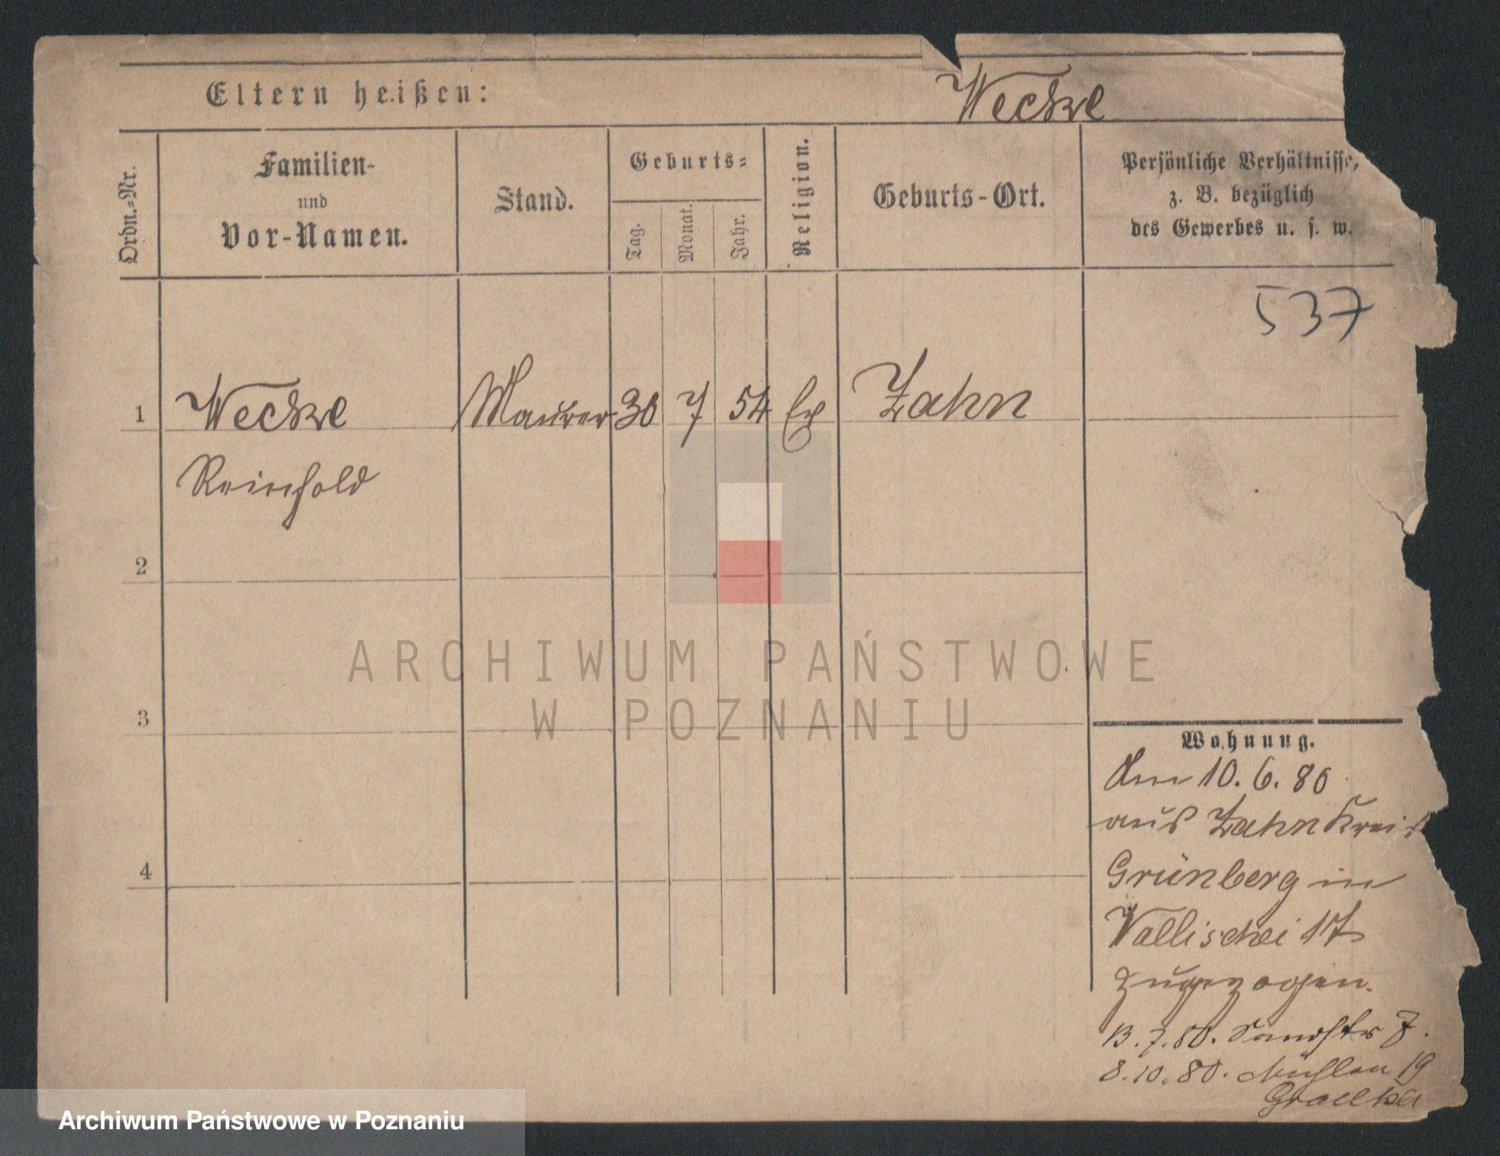 Eltern heißen:
Weckwe
Ordn.-Nr.
Familien-
und
Vor-Namen.
Stand.
Geburts-
Tag.
Monat.
Jahr.
Religion.
Geburts-Ort.
Persönliche Verhältnisse,
z. B. bezüglich
des Gewerbes u. s. w.
537
1 Maurer 30 7 54 Zahn
Reinhold
2
3
4
Wohnung.
Am 10. 6. 80
aus Zahn Kreis
Grünberg in
Wallischei 17
zugezogen.
13. 7. 80. Sandstr 8.
8. 10. 80. Mühlen 19
ARCHIWUM PAŃSTWOWE
W POZNANIU
Archiwum Państwowe w Poznaniu